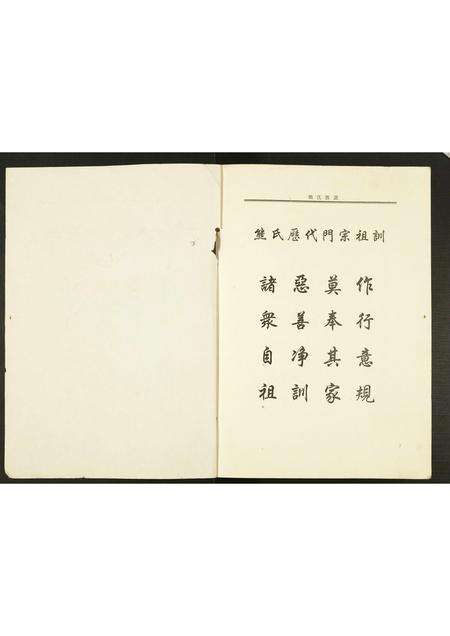 熊氏歷代門宗祖訓
諸惡莫作
衆善奉行
自净其意
祖訓家規